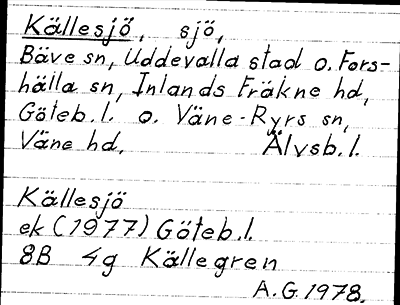 Källesjö, sjö,
Bäve sn, Uddevalla stad o. Fors-
hälla sn, Inlands Fräkne hd,
Göteb.l. o. Väne-Ryrs sn,
Väne hd, Älvsb.l.
Källesjö
ek (1977) Göteb.l.
8B 4g Källegren
A.G.1978.